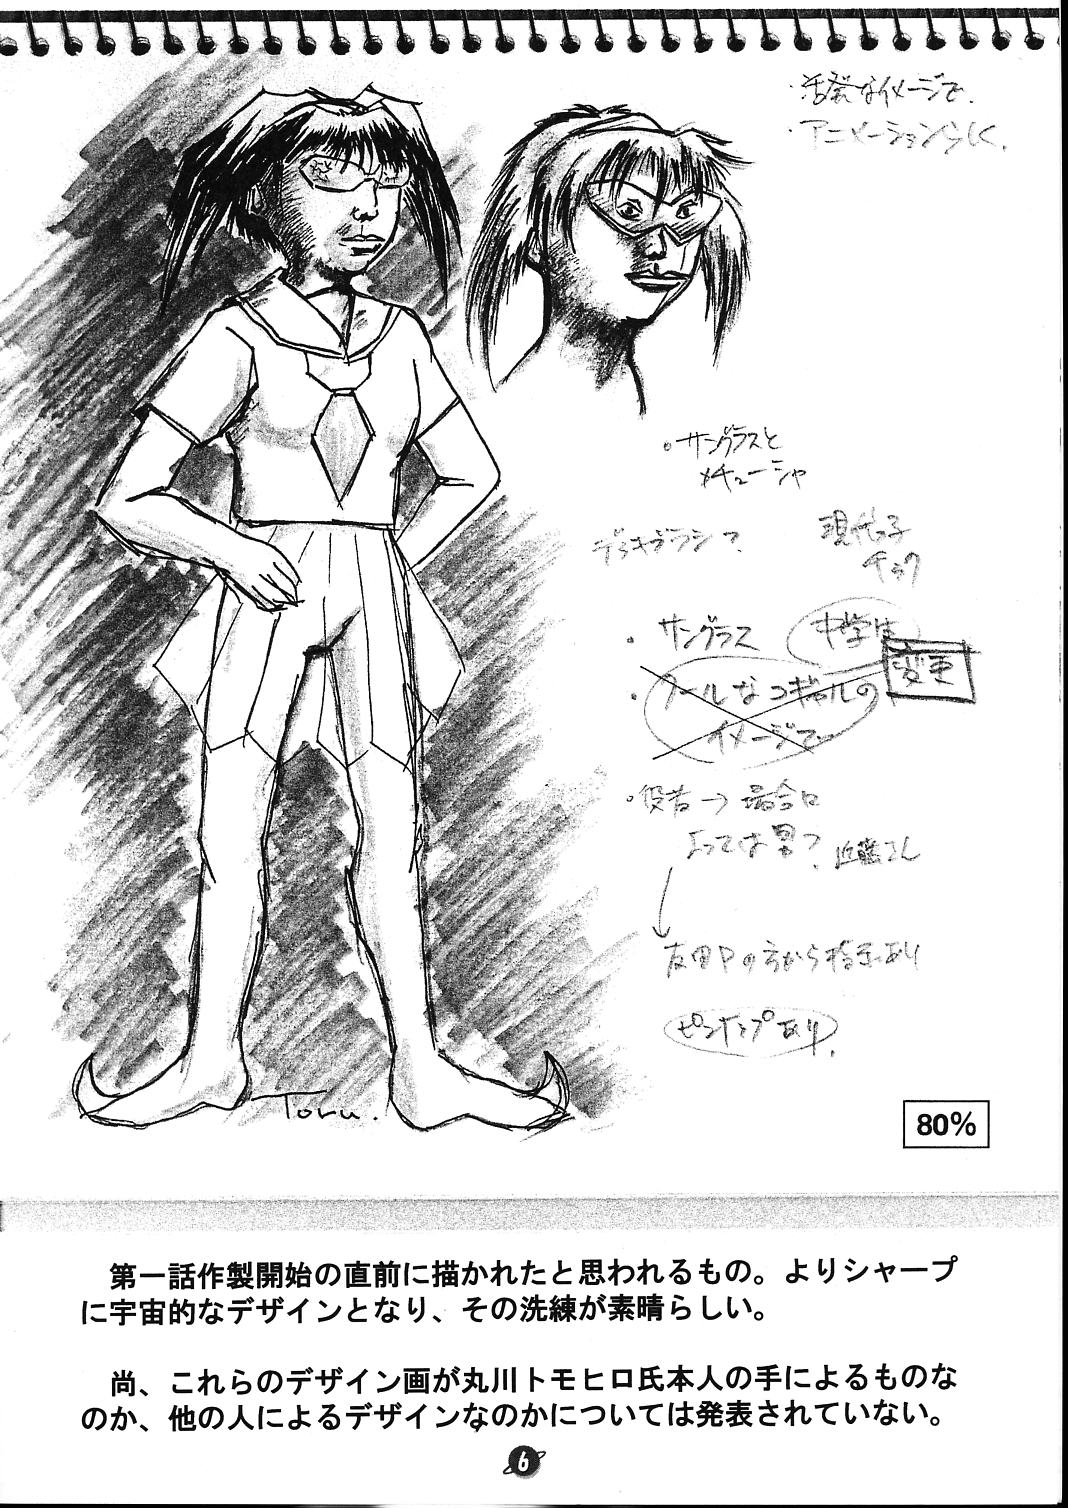 ・活発なイメージで.
・アニメーションらしく.
・サングラスと
メチューシャ
デッキブラシ?
現代っ子
チック
・サングラス
中学生
変更
・クールなコギャルの
イメージで
・役者→場合に
よっては男?近藤さん
友田Pの方から指示あり
ピンナップあり.
Toru.
80%
第一話作製開始の直前に描かれたと思われるもの。よりシャープ
に宇宙的なデザインとなり、その洗練が素晴らしい。
尚、これらのデザイン画が丸川トモヒロ氏本人の手によるものな
のか、他の人によるデザインなのかについては発表されていない。
6